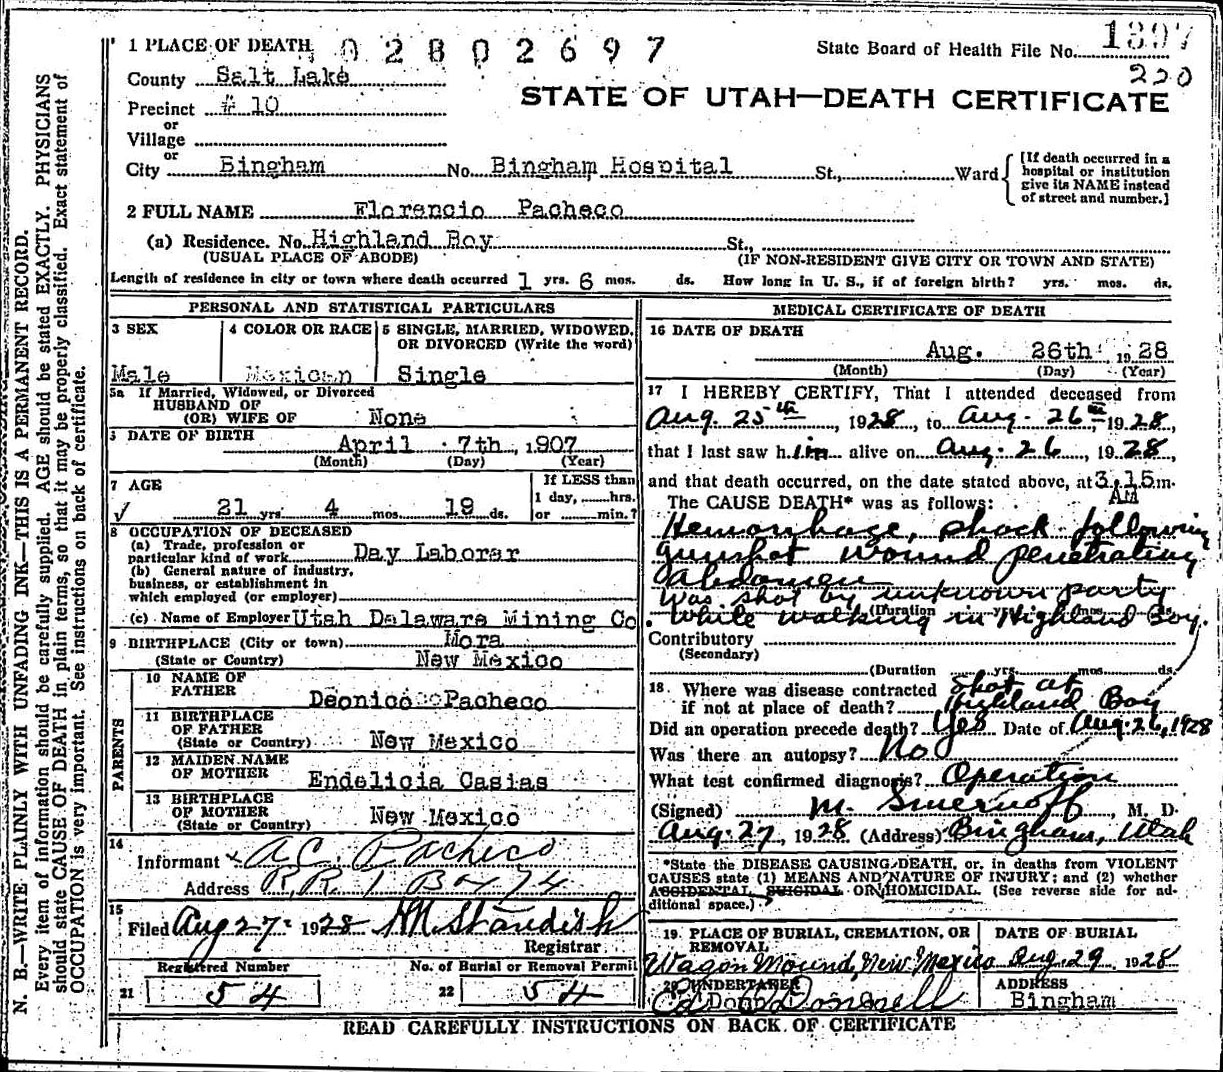 N. B.—WRITE PLAINLY WITH UNFADING INK—THIS IS A PERMANENT RECORD.
Every item of information should be carefully supplied. AGE should be stated EXACTLY. PHYSICIANS
should state CAUSE OF DEATH in plain terms, so that it may be properly classified. Exact statement of
OCCUPATION is very important. See instructions on back of certificate.
1 PLACE OF DEATH 02802697
State Board of Health File No. 1897
220
County Salt Lake
STATE OF UTAH—DEATH CERTIFICATE
Precinct # 10
or
Village
or
City Bingham No. Bingham Hospital St., Ward
[If death occurred in a
hospital or institution
give its NAME instead
of street and number.]
2 FULL NAME Florencio Pacheco
(a) Residence. No. Highland Boy St.,
(USUAL PLACE OF ABODE) (IF NON-RESIDENT GIVE CITY OR TOWN AND STATE)
Length of residence in city or town where death occurred 1 yrs. 6 mos. ds. How long in U. S., if of foreign birth? yrs. mos. ds.
PERSONAL AND STATISTICAL PARTICULARS
3 SEX
Male
4 COLOR OR RACE
Mexican
5 SINGLE, MARRIED, WIDOWED,
OR DIVORCED (Write the word)
Single
5a If Married, Widowed, or Divorced
HUSBAND OF
(OR) WIFE OF None
6 DATE OF BIRTH
April 7th, 1907
(Month) (Day) (Year)
7 AGE
21 yrs. 4 mos. 19 ds.
If LESS than
1 day, hrs.
or min.?
8 OCCUPATION OF DECEASED
(a) Trade, profession or
particular kind of work Day Laborar
(b) General nature of industry,
business, or establishment in
which employed (or employer)
(c) Name of Employer Utah Delaware Mining Co.
9 BIRTHPLACE (City or town) Mora
(State or Country) New Mexico
PARENTS
10 NAME OF
FATHER Deonico Pacheco
11 BIRTHPLACE
OF FATHER
(State or Country) New Mexico
12 MAIDEN NAME
OF MOTHER Endelicia Casias
13 BIRTHPLACE
OF MOTHER
(State or Country) New Mexico
14
Informant A.C. Pacheco
Address R.R. 1 Box 74
15
Filed Aug 27, 1928 HM Standish
Registrar
Registered Number No. of Burial or Removal Permit
21 54 22 54
MEDICAL CERTIFICATE OF DEATH
16 DATE OF DEATH
Aug. 26th 1928
(Month) (Day) (Year)
17 I HEREBY CERTIFY, That I attended deceased from
Aug. 25th, 1928, to Aug. 26th, 1928,
that I last saw him alive on Aug. 26, 1928,
and that death occurred, on the date stated above, at 3:15 m.
AM
The CAUSE DEATH* was as follows:
Hemorrhage, shock following
gunshot wound penetrating
abdomen
Was shot by unknown party
(Duration yrs. mos. ds.
while walking in Highland Boy.
Contributory
(Secondary)
(Duration yrs. mos. ds.
18. Where was disease contracted Shot at
if not at place of death? Highland Boy
Did an operation precede death? Yes Date of Aug. 26, 1928
Was there an autopsy? No
What test confirmed diagnosis? Operation
(Signed) M. Smernoff, M. D.
Aug. 27, 1928 (Address) Bingham, Utah
*State the DISEASE CAUSING DEATH, or, in deaths from VIOLENT
CAUSES state (1) MEANS AND NATURE OF INJURY; and (2) whether
ACCIDENTAL, SUICIDAL OR HOMICIDAL. (See reverse side for ad-
ditional space.)
19. PLACE OF BURIAL, CREMATION, OR
REMOVAL
Wagon Mound, New Mexico
DATE OF BURIAL
Aug. 29 1928
20 UNDERTAKER
O'Donnell
ADDRESS
Bingham
READ CAREFULLY INSTRUCTIONS ON BACK OF CERTIFICATE